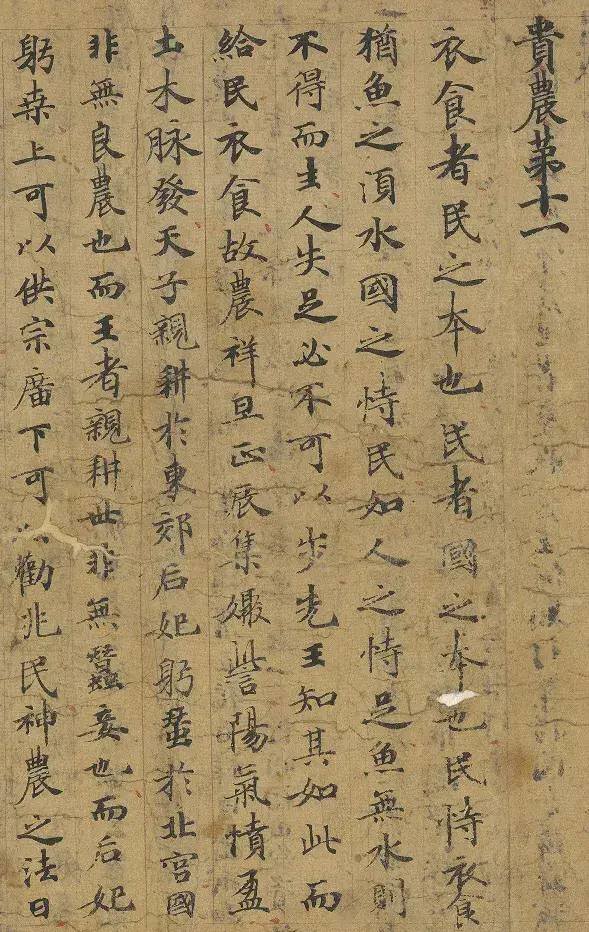 貴農苐十一
衣食者民之本也民者國之本也民恃衣食
猶魚之湏水國之恃民如人之恃足魚無水則
不得而生人失足必不可以步先王知其如此而
給民衣食故農祥旦正辰集娵訾陽氣憤盈
土木脉發天子親耕於東郊后妃躬蚕於北宮國
非無良農也而王者親耕世非無蠶妾也而后妃
躬桒上可以供宗廣下可以勸兆民神農之法曰